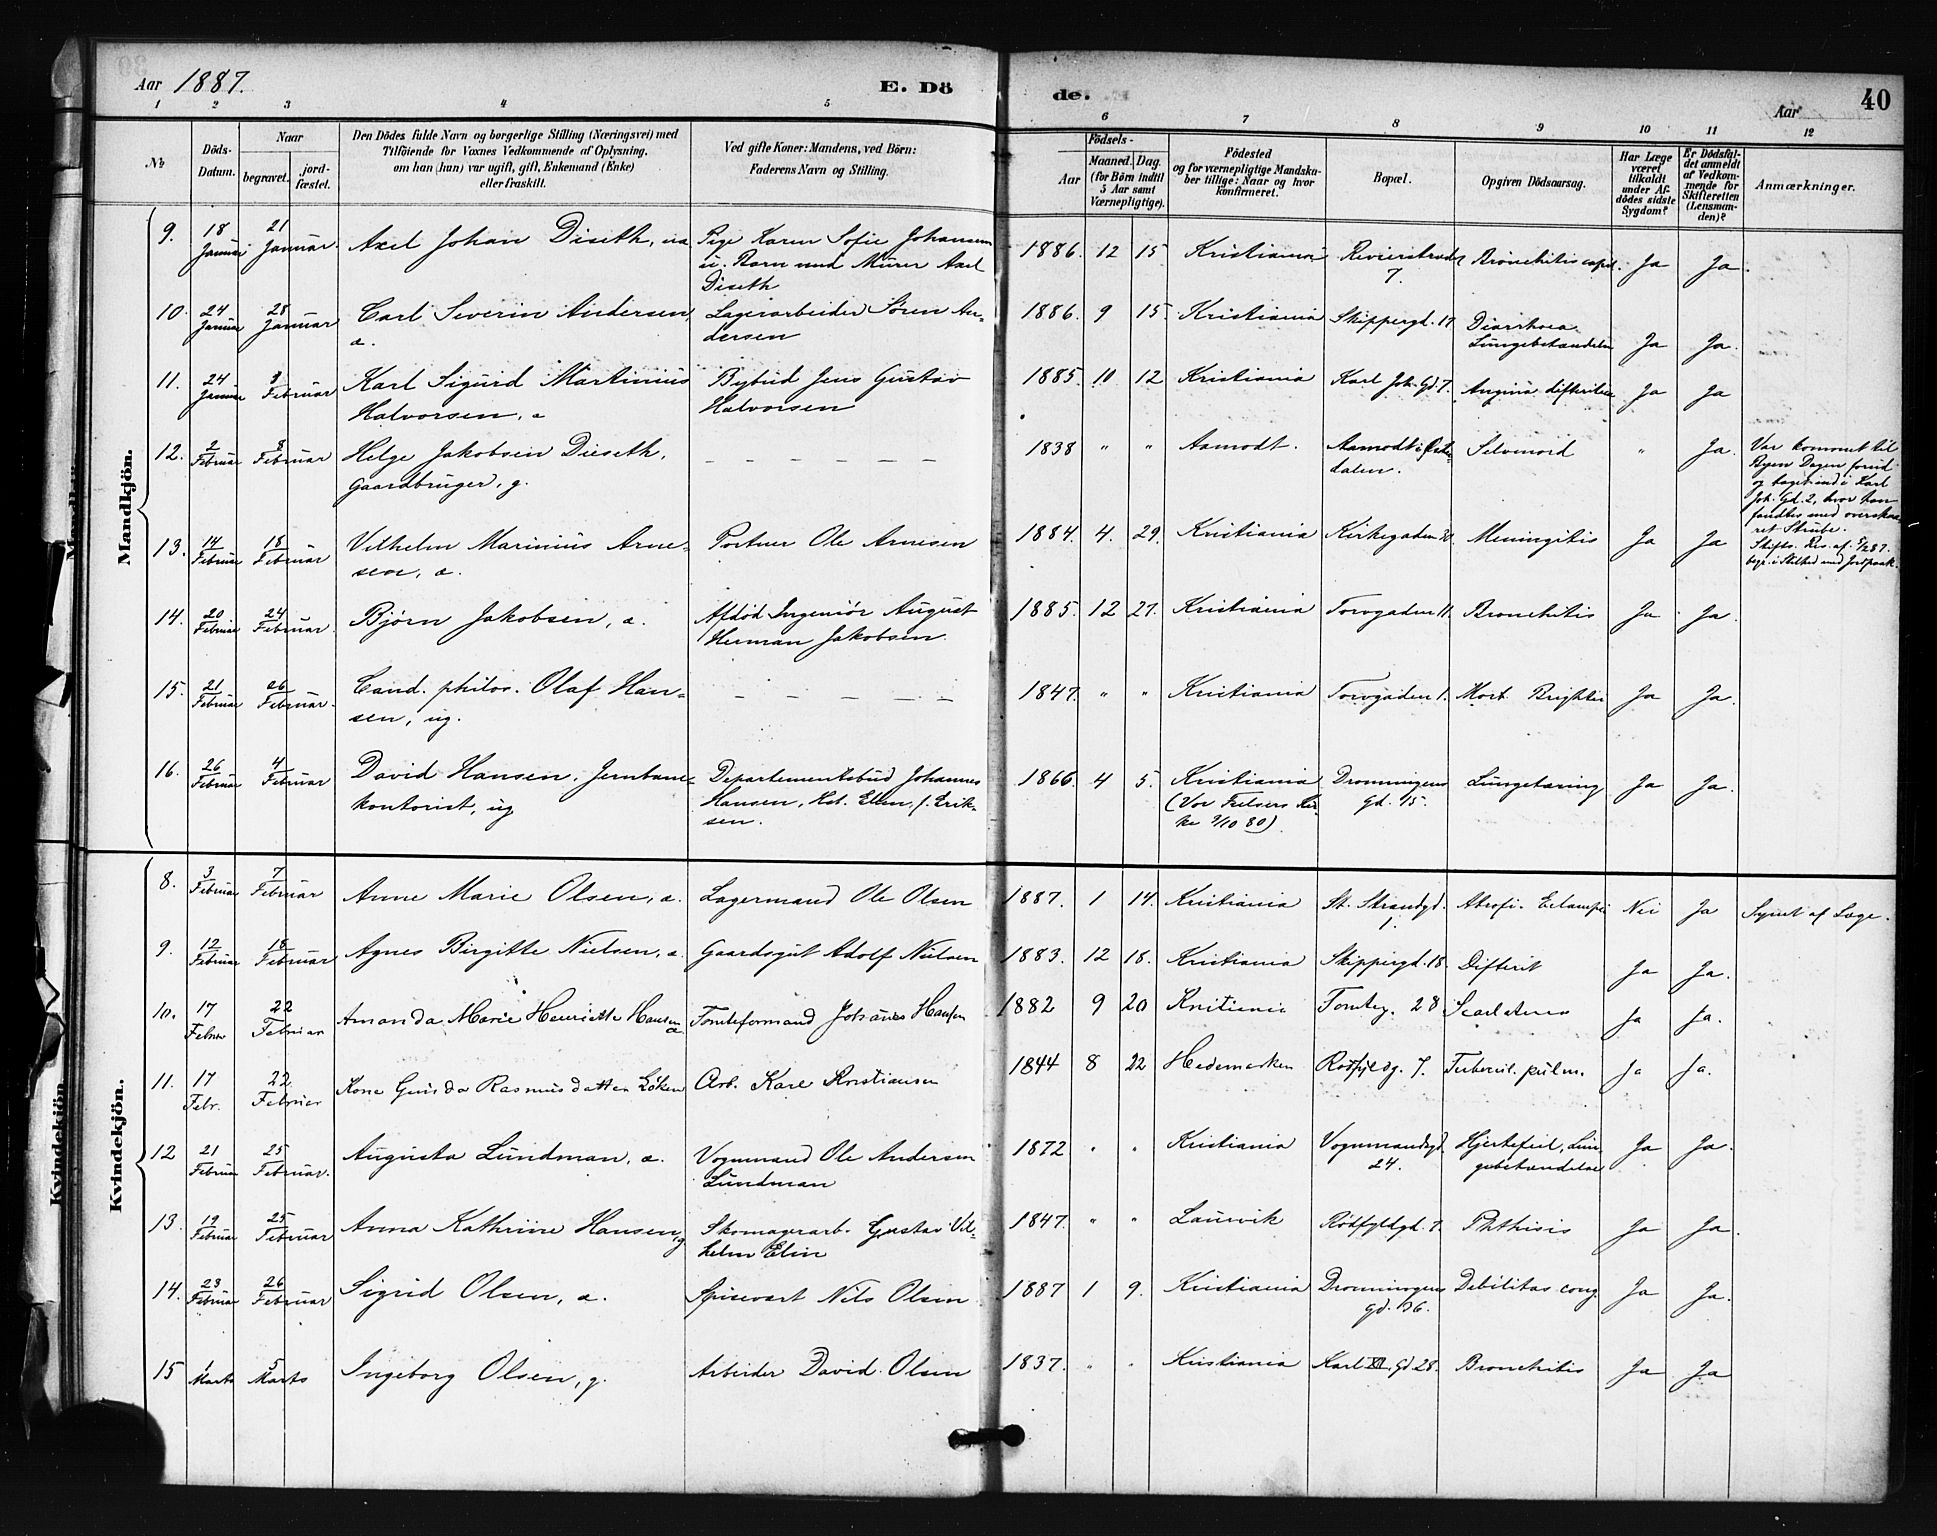 Aar 1887.
E. Dö
de.
Aar
40
1 2 3 4 5 6 7 8 9 10 11 12
№
Döds-
Datum.
Naar
begravet.
jord-
fæstet.
Den Dödes fulde Navn og borgerlige Stilling (Næringsvei) med
Tilföiende for Voxnes Vedkommende af Oplysning,
om han (hun) var ugift, gift, Enkemand (Enke)
eller fraskilt.
Ved gifte Koner: Mandens, ved Börn:
Faderens Navn og Stilling.
Födsels-
Aar
Maaned. Dag.
(for Börn indtil
5 Aar samt
Værnepligtige).
Födested
og for værnepligtige Mandska-
ber tillige: Naar og hvor
konfirmeret.
Bopæl.
Opgiven Dödsaarsag.
Har Læge
været
tilkaldt
under Af-
dödes sidste
Sygdom?
Er Dödsfal-
det anmeldt
af Vedkom-
mende for
Skifteretten
(Lensman-
den)?
Anmærkninger.
Mandkjön.
9. 18 Januar 21 Januar. Axel Johan Diseth, Pige Karen Sofie Johansen
u. Barn med Murer Axel
Diseth
1886. 12 15 Kristiania 7. Ja Ja.
10. 24 Januar 28 Januar Carl Severin Andersen,
a.
Lagerarbeider Søren An-
dersen
1886. 9 15. Kristiania Skippergd. 17 Diarrhoea
Lungebetændelse Ja Ja.
11. 24 Januar 3 Februar Karl Sigurd Martinius
Halvorsen, a
Bybud Jens Gustav
Halvorsen
1885. 10 12 Kristiania Karl Joh. Gd. 7. Angina difteritica Ja Ja
12. 2 Februar 8 Februar Helge Jakobsen Dieseth,
Gaardbruger, g.
— — — — — —
1838 " " Aamodt. Aamodt i Øster-
dalen. Selvmord " Ja.
Var kommet til
Byen Dagen forud
og taget ind i Karl
Joh. Gd. 2, hvor han
fandtes med overskaa-
ret Strube.
13. 14 Februar 18 Februar Vilhelm Marinius Arne-
sen, a.
Portner Ole Arnesen
1884. 4. 29. Kristiania Kirkegaden Meningitis Ja Ja
14. 20 Februar 24 Februar. Bjørn Jakobsen, a. Afdød Ingeniør August
Herman Jakobsen.
1885. 12 27. Kristiania Torvgaden 11. Bronchitis Ja Ja.
15. 21 Februar 26 Februar. Cand. philos. Olaf Han-
sen, ug.
— — — — — —
1847. " " Kristiania Torvgaden 1. Morb. Brightii Ja Ja.
16. 26 Februar 4 Februar David Hansen. Jernbane-
kontorist, ug
Departementsbud Johannes
Hansen, Hst. Ellen, f. Erik-
sen.
1866 4 5. Kristiania
(Vor Frelsers Kir-
ke 3/10 80).
Dronningens
Gd. 15. Lungetæring Ja Ja.
Kvindekjön.
8. 3 Februar 7 Februar Anne Marie Olsen, a. Lagermand Ole Olsen
1887. 1 14. Kristiania St. Strandgd.
1. Atrofi. Eclampsi Nei Ja Synet af Læge.
9. 12 Februar 18 Februar Agnes Birgitte Nielsen, a. Gaardsgut Adolf Nielsen
1883. 12 18. Kristiania Skippergd. 18. Difterit Ja Ja.
10. 17 Februar 22 Februar Amanda Marie Henriette Hansen
a Tomteformand Johanes Hansen
1882 9 20 Kristiania Tomteg. 28 Scarlatina Ja Ja.
11. 17 Febr. 22 Februar Kone Gunda Rasmusdatter Løken Arb. Karl Kristiansen
1844 8 22 Hedemarken Rødfyldg. 7. Tubercul. pulm. Ja Ja.
12 21 Februar 25 Februar. Augusta Lundman, a. Vognmand Ole Andersen
Lundman
1872 " " Kristiania Vognmandsgd.
24. Hjertefeil, Lun-
gebetændelse Ja Ja.
13. 19 Februar 25 Februar Anna Kathrine Hansen, g Skomagerarb. Gustav Vil-
helm Elin
1847. " " Laurvik Rødfyldgd. 7. Phthisis Ja Ja.
14. 23 Februar 26 Februar Sigrid Olsen, a. Spisevært Nils Olsen
1887 1 9. Kristiania Dronningens
Gd. 36. Debilitas cong. Ja Ja.
15 1 Marts 5 Marts Ingeborg Olsen, g. Arbeider David Olsen
1837. " " Kristiania Karl XII. Gd 28. Bronchitis Ja Ja